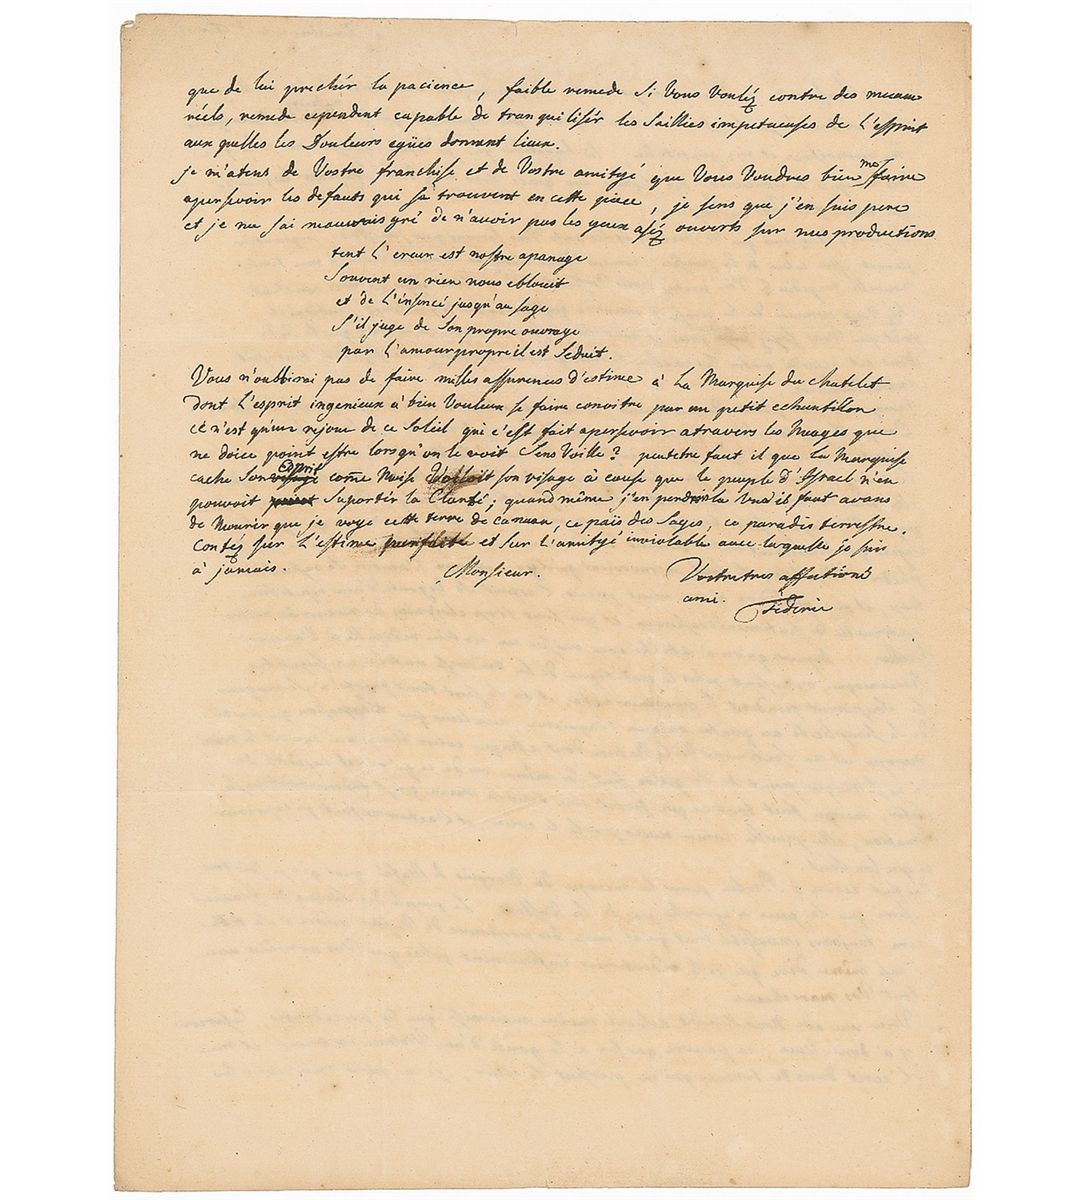 que de lui prechér la pacience, faible remede si Vous Vouléz contre des meaux
réels, remede cependent capable de tranquilisér les Saillies impetueuses de l'esprit
aux quelles les Douleurs egües donnent lieux.
je m'atens de Vostre franchise et de Vostre amityé que Vous Voudres bien me faire
apersevoir les defauts qui sa trouvent en cette piece, je sens que j'en suis pere
et je me sai mauvais gré de n'avoir pas les yeux aséz ouverts sur mes productions
tent l'ereur est nostre apanage
Souvent un rien nous eblouit
et de l'insencé jusqu'au sage
S'il juge de son propre ouvrage
par l'amour propre il est Seduit.
Vous n'oublirai pas de faire milles assurences d'estime à La Marquise du chatelet
dont l'esprit ingenieux à bien Vouleu se faire conoitre par un petit echantillon
ce n'est qu'un rejon de ce Soleil qui c'est fait apersevoir atravers les Nuages que
ne doice point estre lorsqu'on le voit Sens Voille? peutetre faut il que la Marquise
cache son visage Esprit come Moise Voiloit son visage à cause que le peuple d'Israel n'en
pouvoit suportér la Clarté; quand même j'en perdrois la vue il faut avans
de Mourir que je voye cette terre de canaan, ce païs des Sages, ce paradis terrestre.
Contéz sur l'estime parfaite et sur l'amityé inviolable avec laquelle je suis
à jamais. Monsieur. Vostre tres affectioné
ami. Féderic